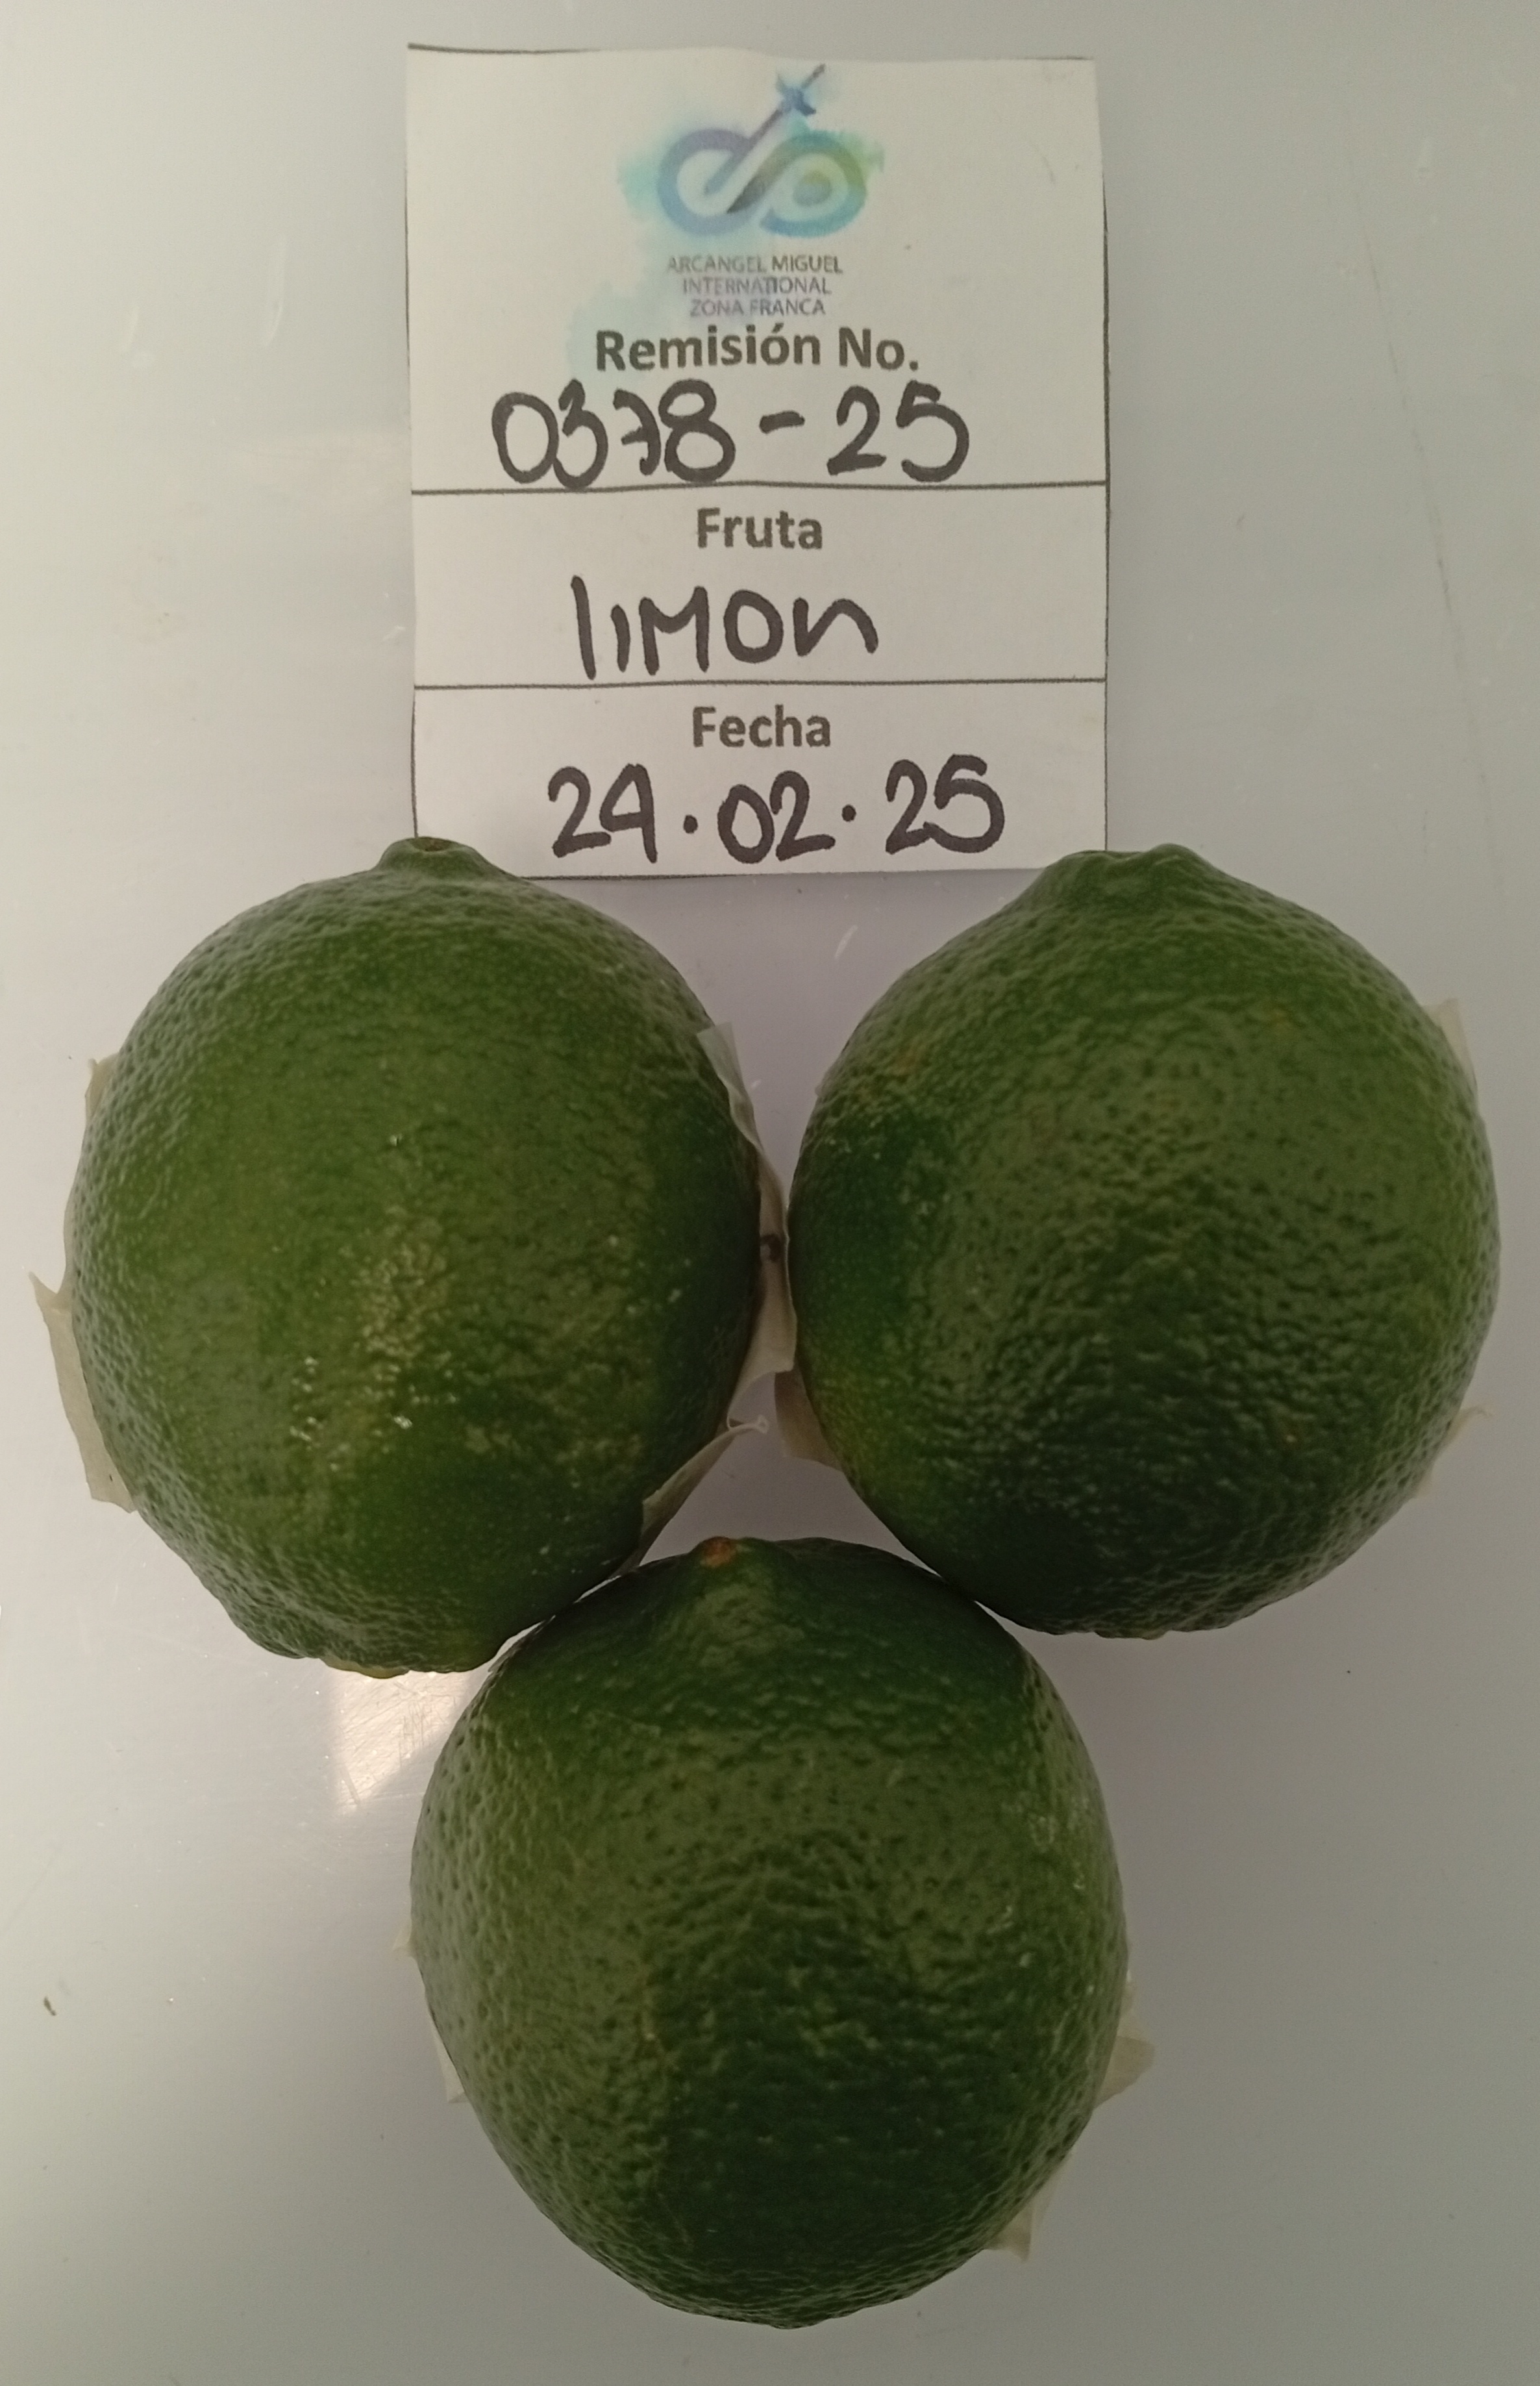 ARCANGEL MIGUEL
INTERNATIONAL
ZONA FRANCA
Remisión No.
0378-25
Fruta
limon
Fecha
24.02.25